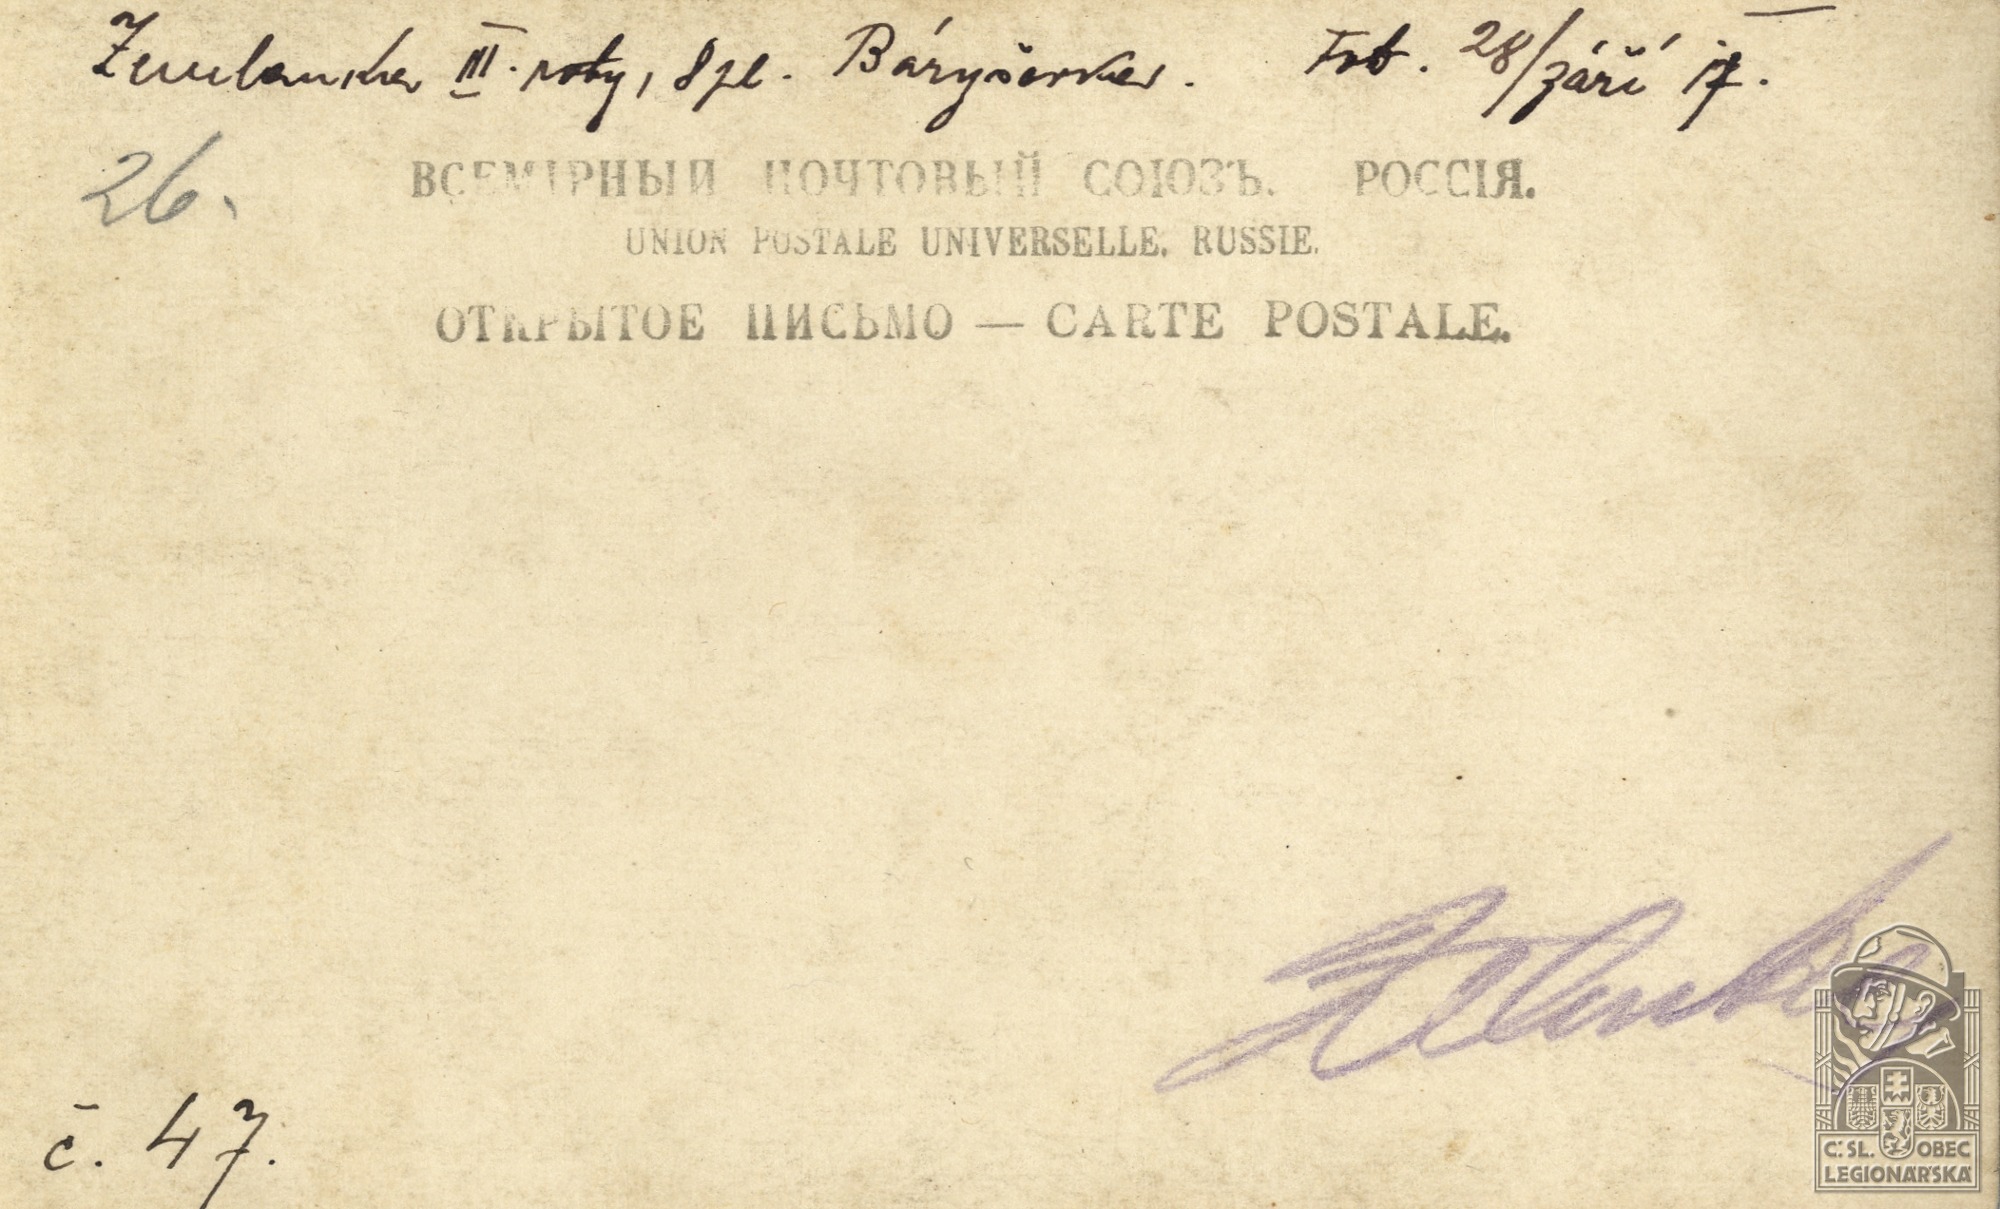 Zemlanka III. roty, 8 pl. Báryševka. Fot. 28/září 17.
26.
ВСЕМІРНЫЙ ПОЧТОВЫЙ СОЮЗЪ. РОССІЯ.
UNION POSTALE UNIVERSELLE. RUSSIE.
ОТКРЫТОЕ ПИСЬМО — CARTE POSTALE.
č. 47.
Č.SL. OBEC
LEGIONÁŘSKÁ